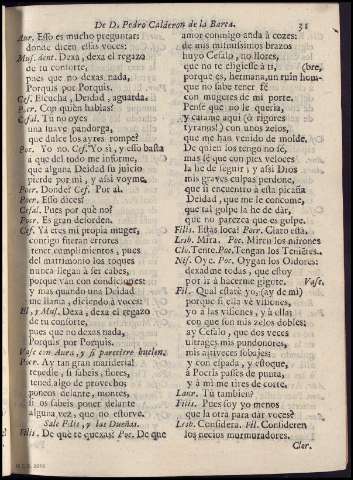 De D. Pedro Calderon de la Barca. 31
Aur. Esso es mucho preguntar:
donde dicen essas voces:
Mus. dent. Dexa, dexa el regazo
de tu consorte,
pues que no dexas nada,
Porquis por Porquis.
Cef. Escucha, Deidad, aguarda.
Poer. Con quièn hablas?
Cefal. Tù no oyes
una suave pandorga,
que dulce los ayres rompe?
Por. Yo no. Cef. Yo sì, y esso basta
a que del todo me informe,
que alguna Deidad su juicio
pierde por mi, y assi voyme.
Poer. Donde? Cef. Por aì.
Poer. Esso dices?
Cefal. Pues por què no?
Pocr. Es gran desorden.
Cef. Yà eres mi propia muger,
contigo fueran errores
tener cumplimientos, pues
del matrimonio los toques
nunca llegan à ser cabes,
porque van con condiciones:
y mas quando una Deidad
me llama, diciendo à voces:
El, y Mus. Dexa, dexa el regazo
de tu consorte,
pues que no dexas nada,
Porquis por Porquis.
Vase con Aura, y si pareciere buelan.
Pocr. Ay tan gran maridería!
tenedle, si sabeis, flores,
tened algo de provecho,
poneos delante, montes,
si os sabeis poner delante
alguna vez, que no estorve.
Sale Filis, y las Dueñas.
Filis. De què te quexas? Poc. De que
amor conmigo anda à cozes:
de mis mitissimos brazos
huyo Cefalo, no llores,
que no te eligiesse à ti, (bre,
porque es, hermana, un ruin hom-
que no sabe tener fé
con mugeres de mi porte.
Pensè que no le queria,
y catame aqui (ò rigores
tyranos!) con unos zelos,
que me han venido de molde.
De quien los tengo no sè,
mas sè que con pies veloces
la he de seguir; y assi Dios
mis graves culpas perdone,
que si encuentro à esta picaña
Deidad, que me le concome,
que tal golpe la he de dàr,
que no parezca que es golpe.
Filis. Estàs loca? Poer. Claro està.
Lesb. Mira. Poc. Mircu los mirones
Clo. Tente. Poc. Tengan los Tenores.
Nis. Oye. Poc. Oygan los Oidores:
dexadme todas, que estoy
por ir à hacerme gigote. Vase.
Fil. Qual estarè yo, (ay de mi)
porque si ella vè visiones,
yo à las visiones, y à ellas
con que son mis zelos dobles:
ay Cefalo, que dos veces
ultrages mis pundonores,
mis altiveces sobajes:
y con espada, y estoque,
à Pocris passes de punta,
y à mi me tires de corte.
Laur. Tu tambien?
Filis. Pues soy yo menos
que la otra para dàr voces?
Lesb. Considera. Fil. Consideren
los necios murmuradores.
Clor.